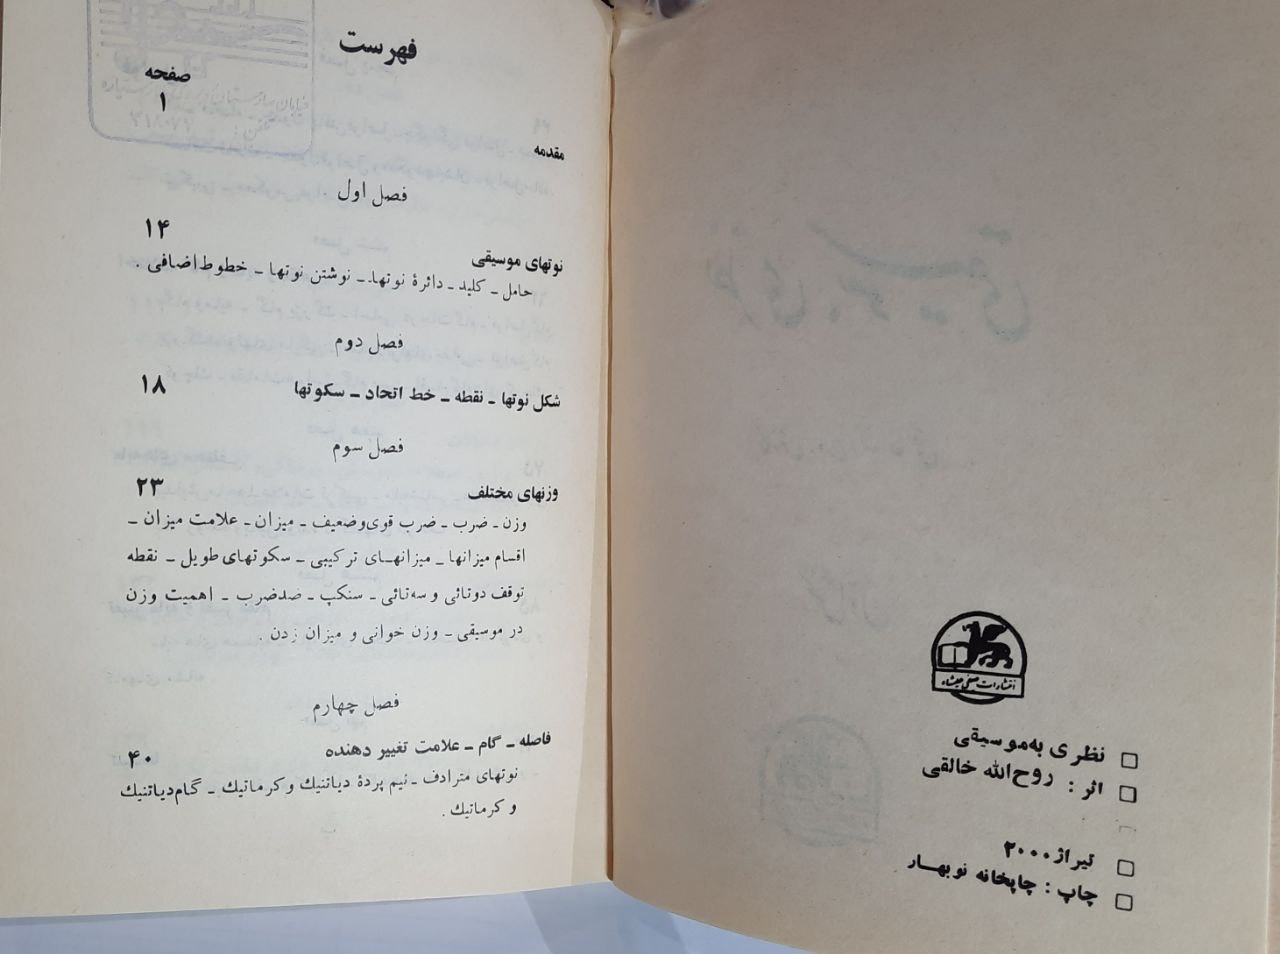 انتشارات صفی‌علیشاه
نظری به‌موسیقی
اثر : روح‌الله خالقی
تیراژ ۲۰۰۰
چاپ : چاپخانه نوبهار
فهرست
صفحه
۱
مقدمه
فصل اول
نوتهای موسیقی ۱۴
حامل ـ کلید ـ دائرهٔ نوتها ـ نوشتن نوتها ـ خطوط اضافی .
فصل دوم
شکل نوتها ـ نقطه ـ خط اتحاد ـ سکوتها ۱۸
فصل سوم
وزنهای مختلف ۲۳
وزن ـ ضرب ـ ضرب قوی‌وضعیف ـ میزان ـ علامت میزان ـ
اقسام میزانها ـ میزانهای ترکیبی ـ سکوتهای طویل ـ نقطه
توقف دوتائی و سه‌تائی ـ سنکپ ـ ضدضرب ـ اهمیت وزن
در موسیقی ـ وزن خوانی و میزان زدن .
فصل چهارم
فاصله ـ گام ـ علامت تغییر دهنده ۴۰
نوتهای مترادف ـ نیم پردهٔ دیاتنیك و کرماتیك ـ گام‌دیاتنیك
و کرماتیك .